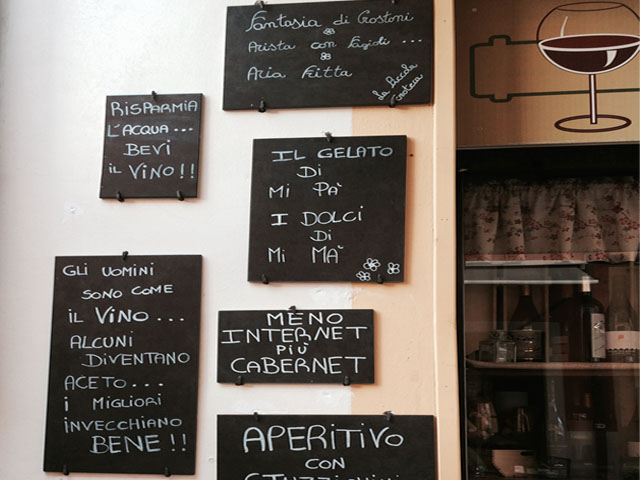 Fantasia di Crostoni
Arista con Fagioli ...
Aria Fritta
La Piccola
enoteca
RISPARMIA
L'ACQUA...
BEVI
il VINO!!
IL GELATO
Di
Mi PA'
I DOLCI
Di
Mi MA'
GLI UOMINI
SONO COME
iL VINO...
ALCUNI
DIVENTANO
ACETO...
i MIGLIORI
iNVECCHIANO
BENE!!
MENO
INTERNET
PIÙ
CABERNET
APERITIVO
CON
STUZZICHINI